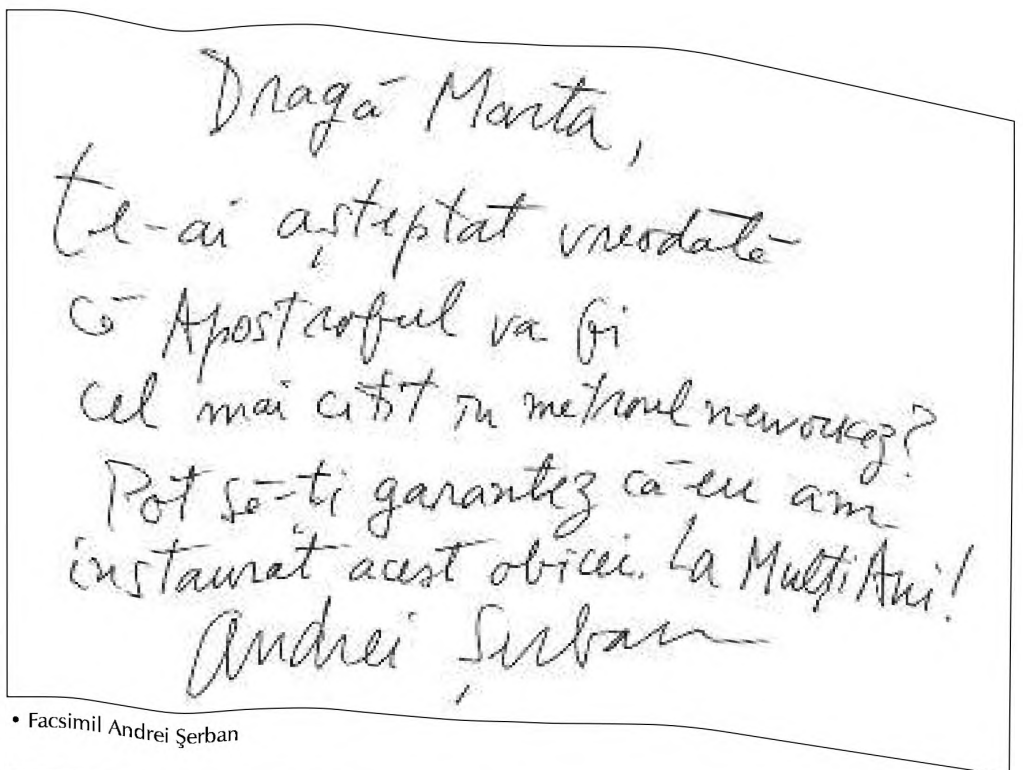 Dragă Marta,
te-ai așteptat vreodată
că Apostroful va fi
cel mai citit în metroul newyorkez?
Pot să-ti garantez că eu am
instaurat acest obicei. La Mulți Ani!
Andrei Șerban
• Facsimil Andrei Şerban